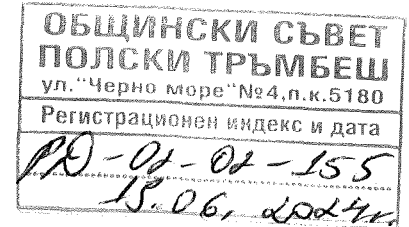 ОБЩИНСКИ СЪВЕТ
ПОЛСКИ ТРЪМБЕШ
ул."Черно море"№4,п.к.5180
Регистрационен индекс и дата
РД-02-02-155
13.06.2024г.